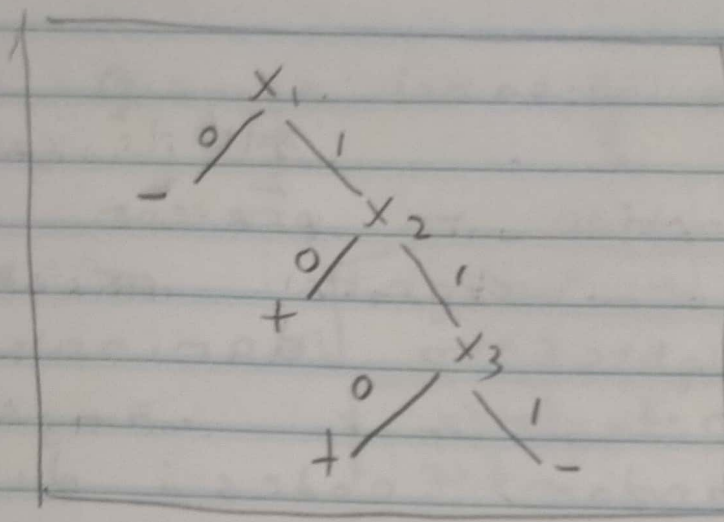 X1
0 1
-
X2
0 1
+
X3
0 1
+ -